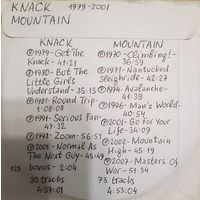 KNACK 1979-2001
MOUNTAIN
KNACK
℗1979-Get The
Knack-41:21
℗1980-But The
Little Girls
Understand-35:13
℗1981-Round Trip-
1:08:08
℗1991-Serious Fun-
47:32
℗1992-Zoom-56:51
℗2001-Normal As
The Next Guy-45:49
123 bonus-2:04
30 tracks
4:57:01
MOUNTAIN
℗1970-Climbing!-
36:23
℗1971-Nantucket
Sleighride-42:27
℗1974-Avalanche-
41:39
℗1996-Man's World-
40:54
℗2001-Go For Your
Life-34:09
℗2002-Mountain
High-45:19
℗2007-Masters Of
War-51:34
73 tracks
4:53:04